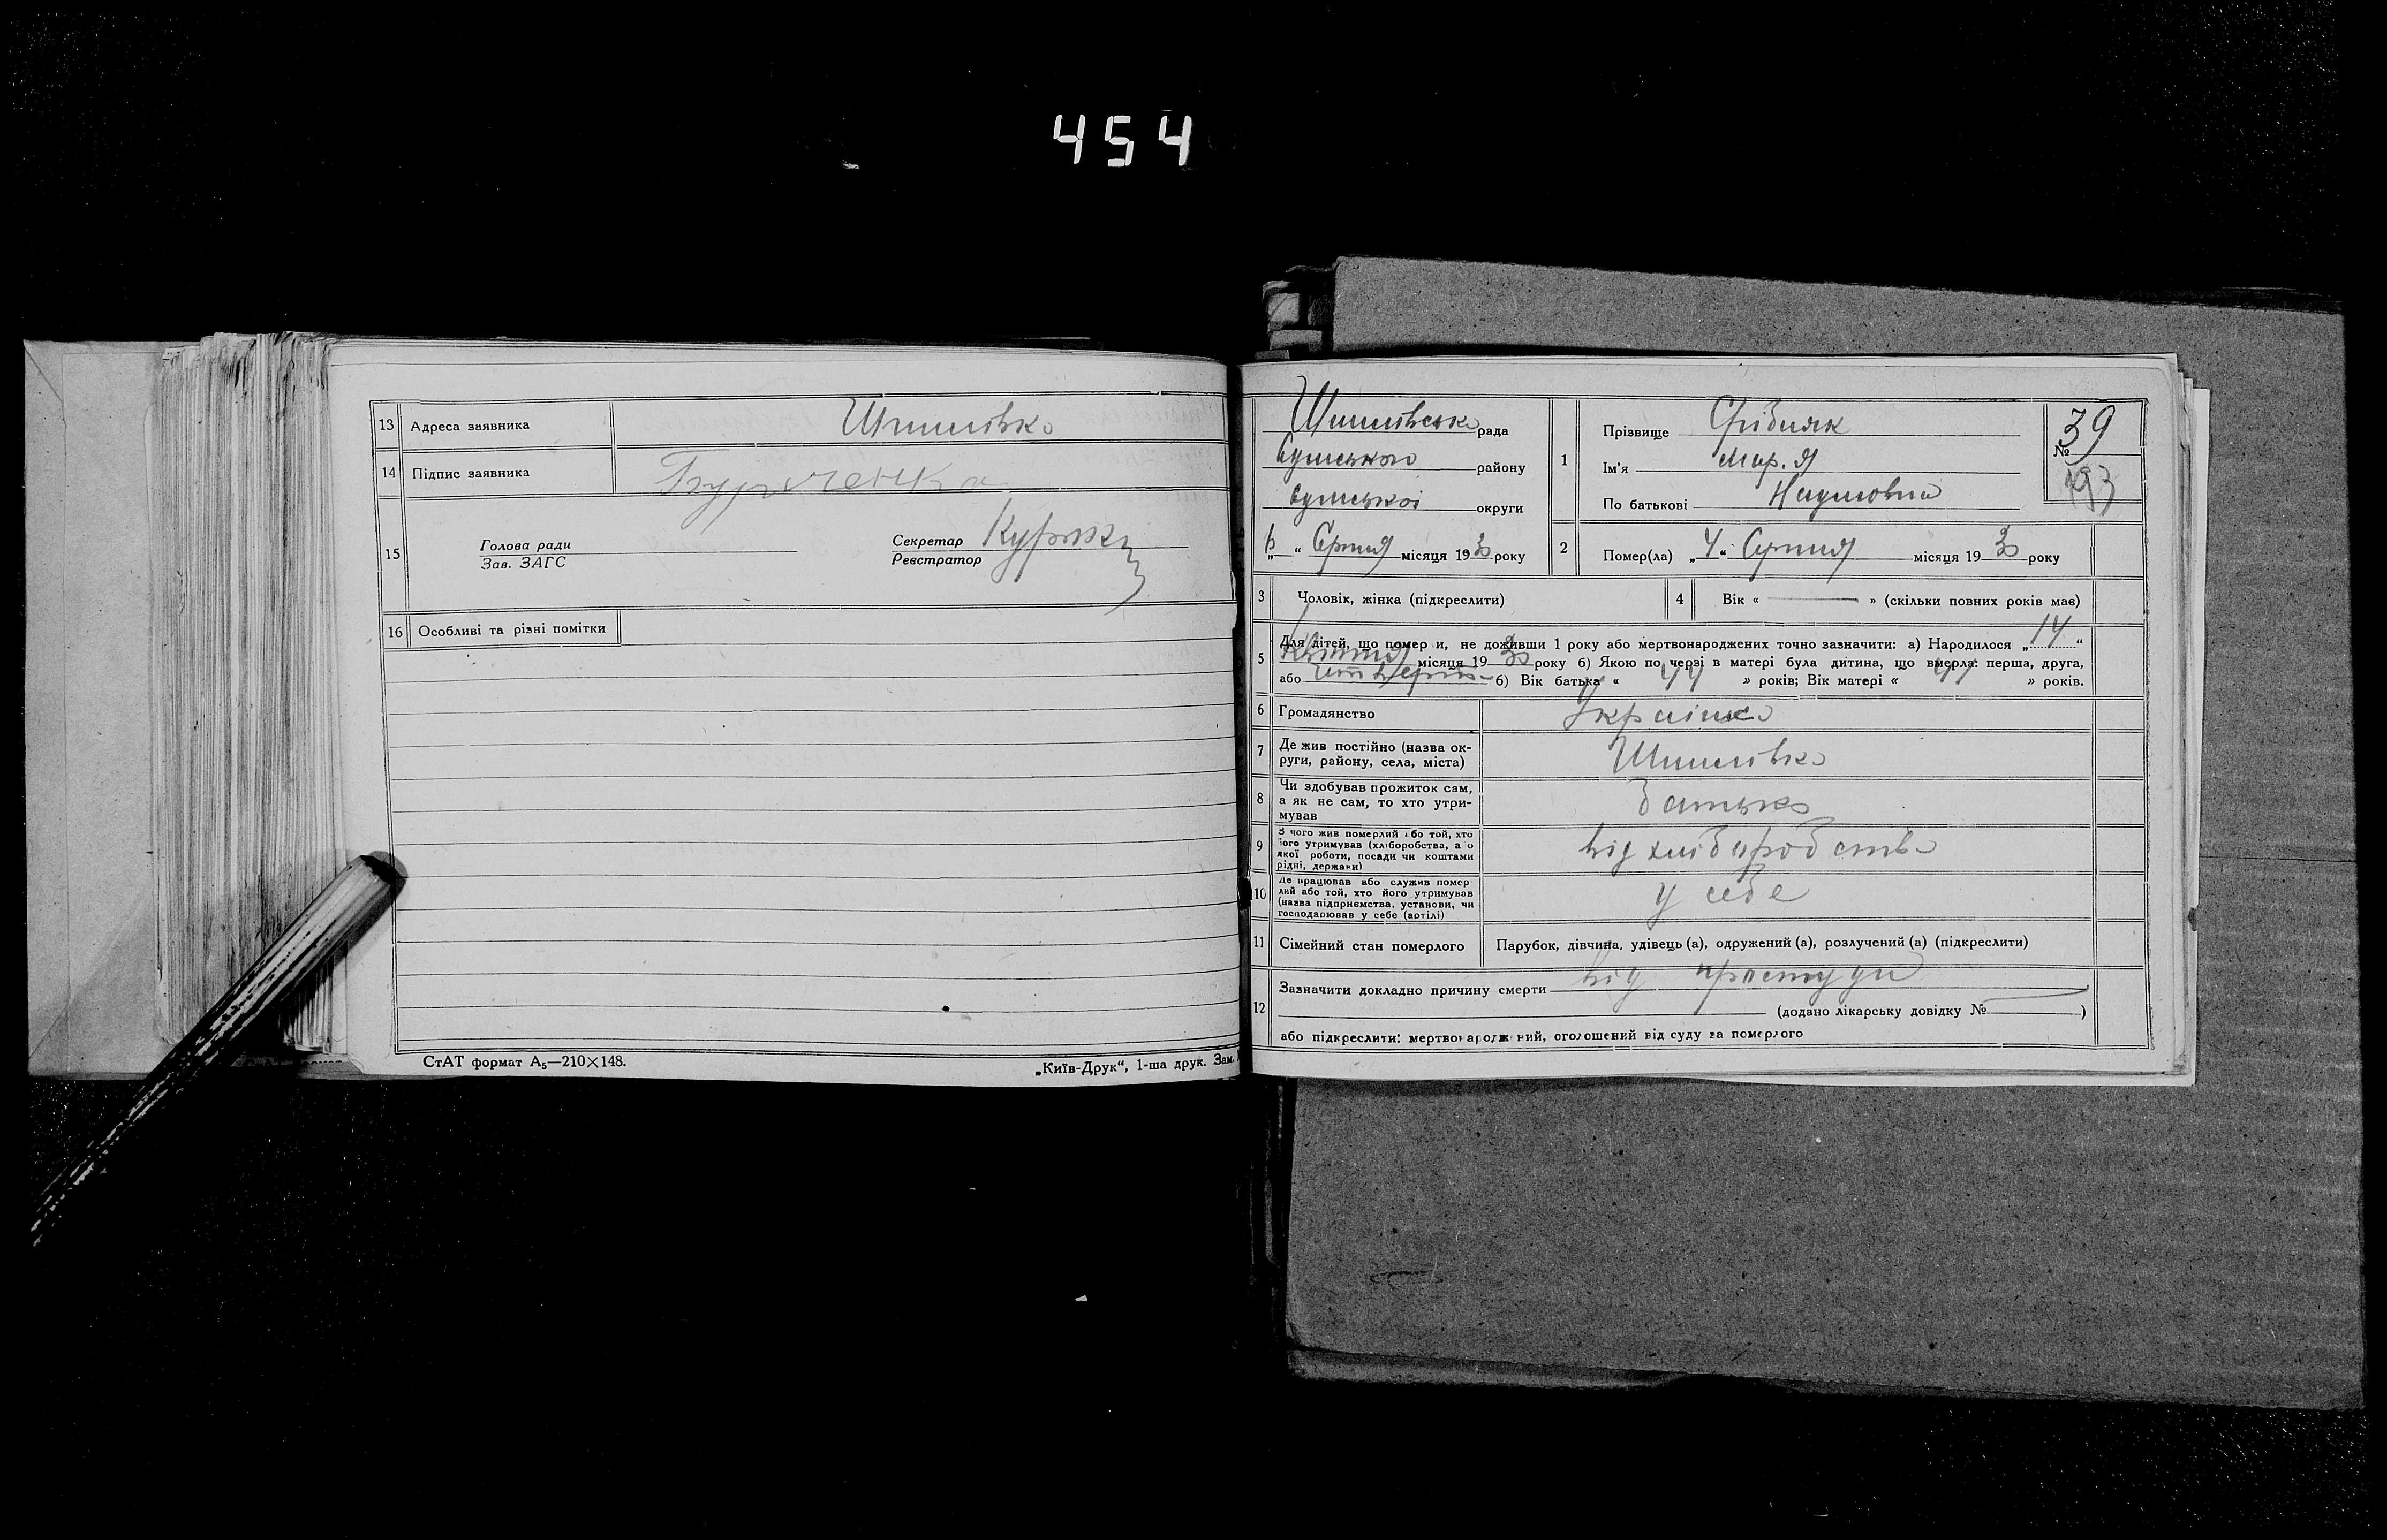 454
13 Адреса заявника Шпилівка
14 Підпис заявника
15 Голова ради
Зав. ЗАГС
Секретар
Реєстратор
16 Особливі та різні помітки
СтАТ формат А₅—210×148.
„Київ-Друк“, 1-ша друк. Зам.
Шпилівська рада
Сумського району
Сумської округи
„6“ Серпня місяця 1930 року
1 Прізвище Срібняк
Ім'я Марія
По батькові Наумовна
№ 39
193
2 Помер(ла) „4“ Серпня місяця 1930 року
3 Чоловік, жінка (підкреслити)
4 Вік « — » (скільки повних років має)
5 Для дітей, що померли, не доживши 1 року або мертвонароджених точно зазначити: а) Народилося „14“
Квітня місяця 1930 року б) Якою по черзі в матері була дитина, що вмерла: перша, друга,
або б) Вік батька « 44 » років; Вік матері « 41 » років.
6 Громадянство Українка
7 Де жив постійно (назва ок-
руги, району, села, міста) Шпилівка
8 Чи здобував прожиток сам,
а як не сам, то хто утри-
мував батько
9 З чого жив померлий або той, хто
його утримував (хліборобства, або
якої роботи, посади чи коштами
рідні, держави) від хліборобства
10 Де працював або служив помер
лий або той, хто його утримував
(назва підприємства, установи, чи
господарював у себе (артілі) у себе
11 Сімейний стан померлого Парубок, дівчина, удівець (а), одружений (а), розлучений (а) (підкреслити)
12 Зазначити докладно причину смерти від простуди
(додано лікарську довідку № — )
або підкреслити: мертвонароджений, оголошений від суду за померлого